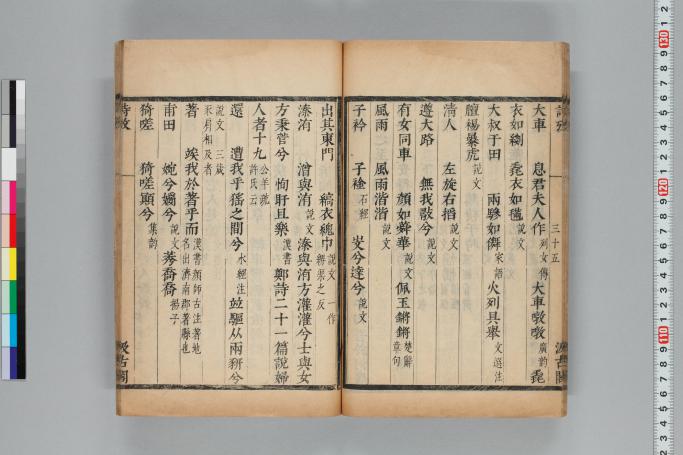 三十五
大車　息君夫人作列女傳　大車啍啍廣韵　毳
衣如繝　毳衣如𧝓說文
大叔于田　兩驂如儛家語　火列具舉文選注
膻裼暴虎說文
清人　左旋右搯說文
遵大路　無我𢿥兮說文
有女同車　顔如蕣華說文　佩玉鏘鏘楚辭章句
風雨　風雨湝湝說文
子衿　子䘳石經　㕛兮達兮說文
出其東門　縞衣綥巾說文　一作
溱洧　潧與洧說文　溱與洧方灌灌兮士與女
方秉菅兮　恂盱且樂漢書　鄭詩二十一篇說婦
人者十九公羊疏許氏云
還　遭我乎嶩之間兮水經注　竝驅从兩豜兮
說文　三歲豕肩相及者
著　竢我於著乎而漢書顏師古注著地名出濟南郡著縣也
甫田　婉兮㜻兮說文　莠喬喬揚子
猗嗟　猗嗟顁兮集韵
詩攷
汲古閣